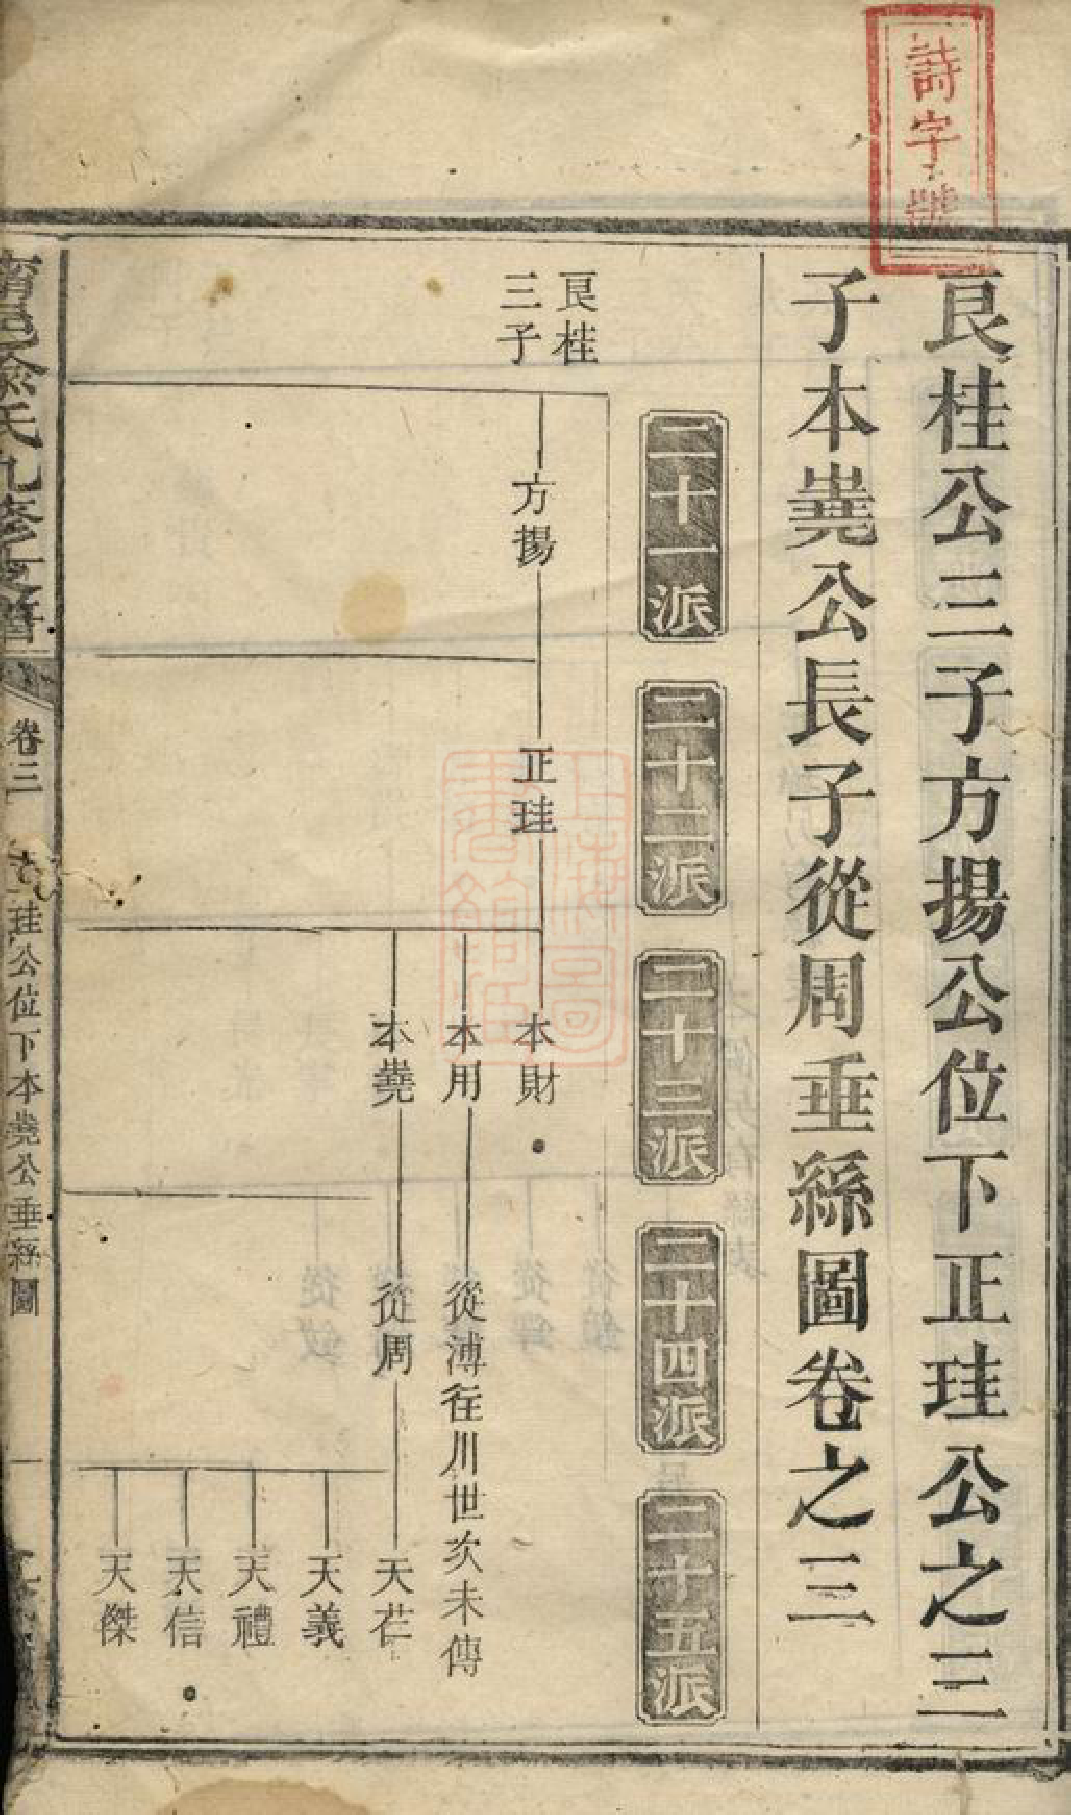 詩字號
艮桂公三子方揚公位下正珪公之三
子本嶤公長子從周垂絲圖卷之三
二十一派
二十二派
二十三派
二十四派
二十五派
艮桂
三子
方揚
正珪
本財
本用
從溥往川世次未傳
本嶤
從周
天仁
天義
天禮
天信
天傑
上海圖
書館藏
氏九修支譜
卷三
珪公位下本嶤公垂絲圖
一